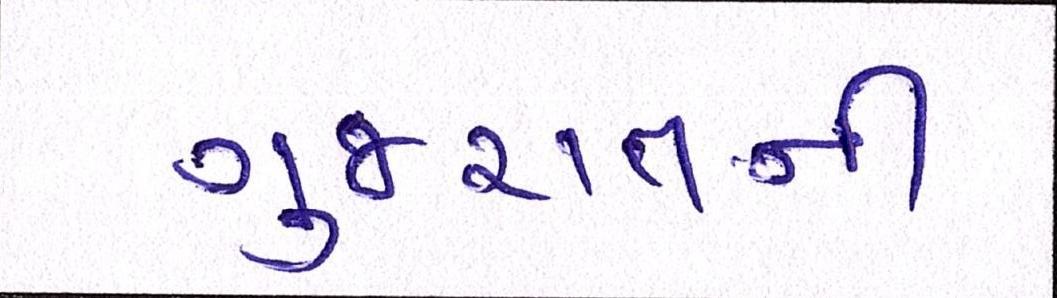 ગુજરાતની